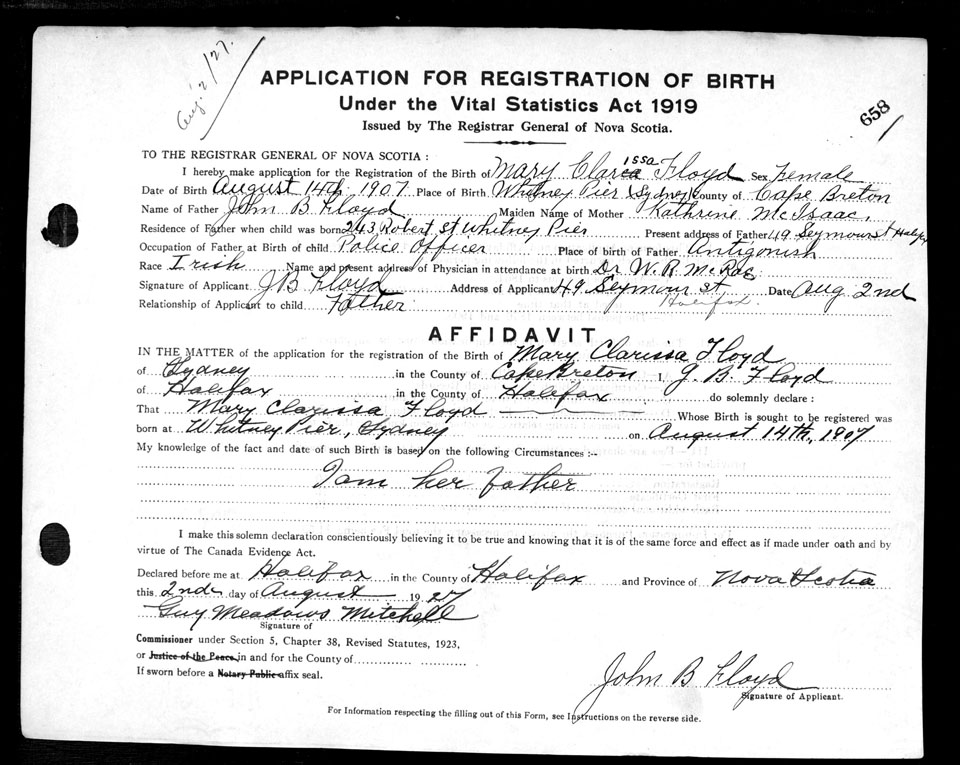 Aug. 2/27.
APPLICATION FOR REGISTRATION OF BIRTH
Under the Vital Statistics Act 1919
658
Issued by The Registrar General of Nova Scotia.
TO THE REGISTRAR GENERAL OF NOVA SCOTIA :
I hereby make application for the Registration of the Birth of Mary Clarissa Floyd Sex Female
Date of Birth August 14th 1907 Place of Birth Whitney Pier (Sydney) County of Cape Breton
Name of Father John B Floyd Maiden Name of Mother Kathrine McIsaac,
Residence of Father when child was born 243 Robert St Whitney Pier Present address of Father 49 Seymour st Halifax
Occupation of Father at Birth of child Police Officer Place of birth of Father Antigonish
Race Irish Name and present address of Physician in attendance at birth Dr W. R. McRae
Signature of Applicant J B Floyd Address of Applicant 49 Seymour st Date Aug 2nd
Halifax.
Relationship of Applicant to child Father
AFFIDAVIT
IN THE MATTER of the application for the registration of the Birth of Mary Clarissa Floyd
of Sydney in the County of Cape Breton I, J. B. Floyd
of Halifax in the County of Halifax do solemnly declare :
That Mary Clarissa Floyd Whose Birth is sought to be registered was
born at Whitney Pier, Sydney on August 14th, 1907
My knowledge of the fact and date of such Birth is based on the following Circumstances :--
I am her father
I make this solemn declaration conscientiously believing it to be true and knowing that it is of the same force and effect as if made under oath and by
virtue of The Canada Evidence Act.
Declared before me at Halifax in the County of Halifax and Province of Nova Scotia
this 2nd day of August 1927
Guy Meadows Mitchell
Signature of
Commissioner under Section 5, Chapter 38, Revised Statutes, 1923,
or Justice of the Peace in and for the County of
If sworn before a Notary Public affix seal.
John B Floyd
Signature of Applicant.
For Information respecting the filling out of this Form, see Instructions on the reverse side.